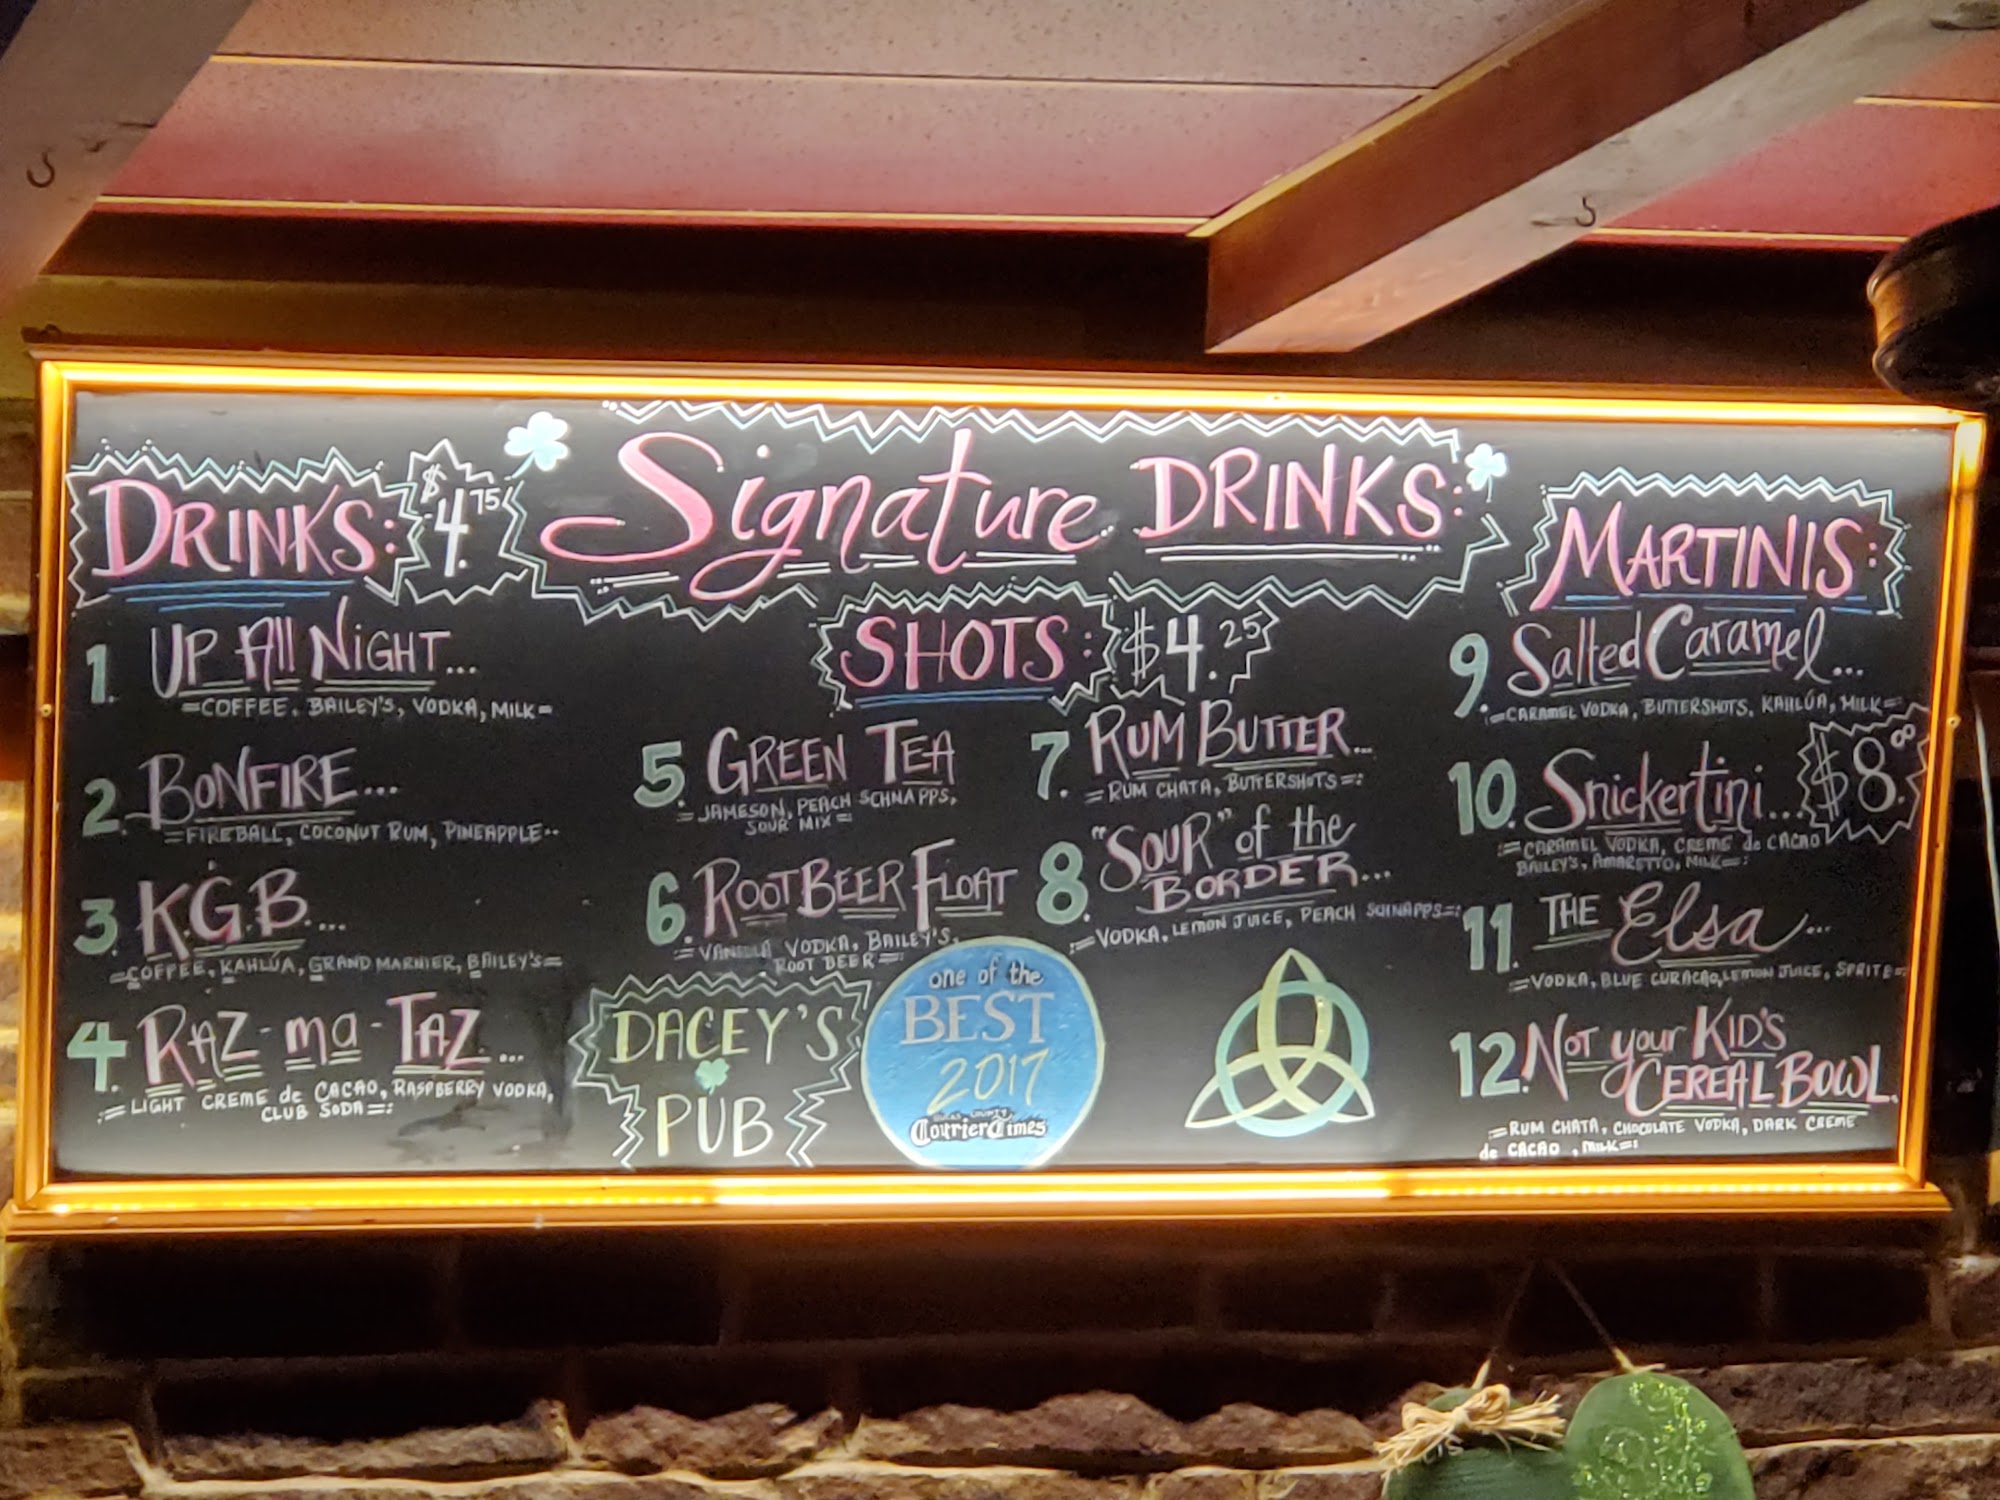 Signature DRINKS:
DRINKS: $4.75
1. UP All NIGHT...
=COFFEE. BAILEY'S, VODKA, MILK=
2. BONFIRE...
=FIREBALL, COCONUT RUM, PINEAPPLE..
3. K.G.B....
=COFFEE, KAHLÚA, GRAND MARNIER, BAILEY'S=
4. RAZ-ma-TAZ...
=LIGHT CREME de CACAO, RASPBERRY VODKA,
CLUB SODA=:
SHOTS: $4.25
5. GREEN TEA
=JAMESON, PEACH SCHNAPPS,
SOUR MIX=
6. ROOT BEER FLOAT
=VANILLA VODKA, BAILEY'S,
ROOT BEER=:
7. RUM BUTTER...
=RUM CHATA, BUTTERSHOTS=:
8. "SOUR" of the
BORDER...
:=VODKA, LEMON JUICE, PEACH SCHNAPPS=:
DACEY'S
PUB
one of the
BEST
2017
COUNTY
Courier Times
MARTINIS:
9. Salted Caramel...
:=CARAMEL VODKA, BUTTERSHOTS, KAHLÚA, MILK=
10. Snickertini... $8.00
:=CARAMEL VODKA, CREME de CACAO
BAILEY'S, AMARETTO, MILK=:
11. THE Elsa...
:=VODKA, BLUE CURACAO, LEMON JUICE, SPRITE=
12. NOT your KID'S
CEREAL BOWL.
:=RUM CHATA, CHOCOLATE VODKA, DARK CREME
de CACAO, MILK=: